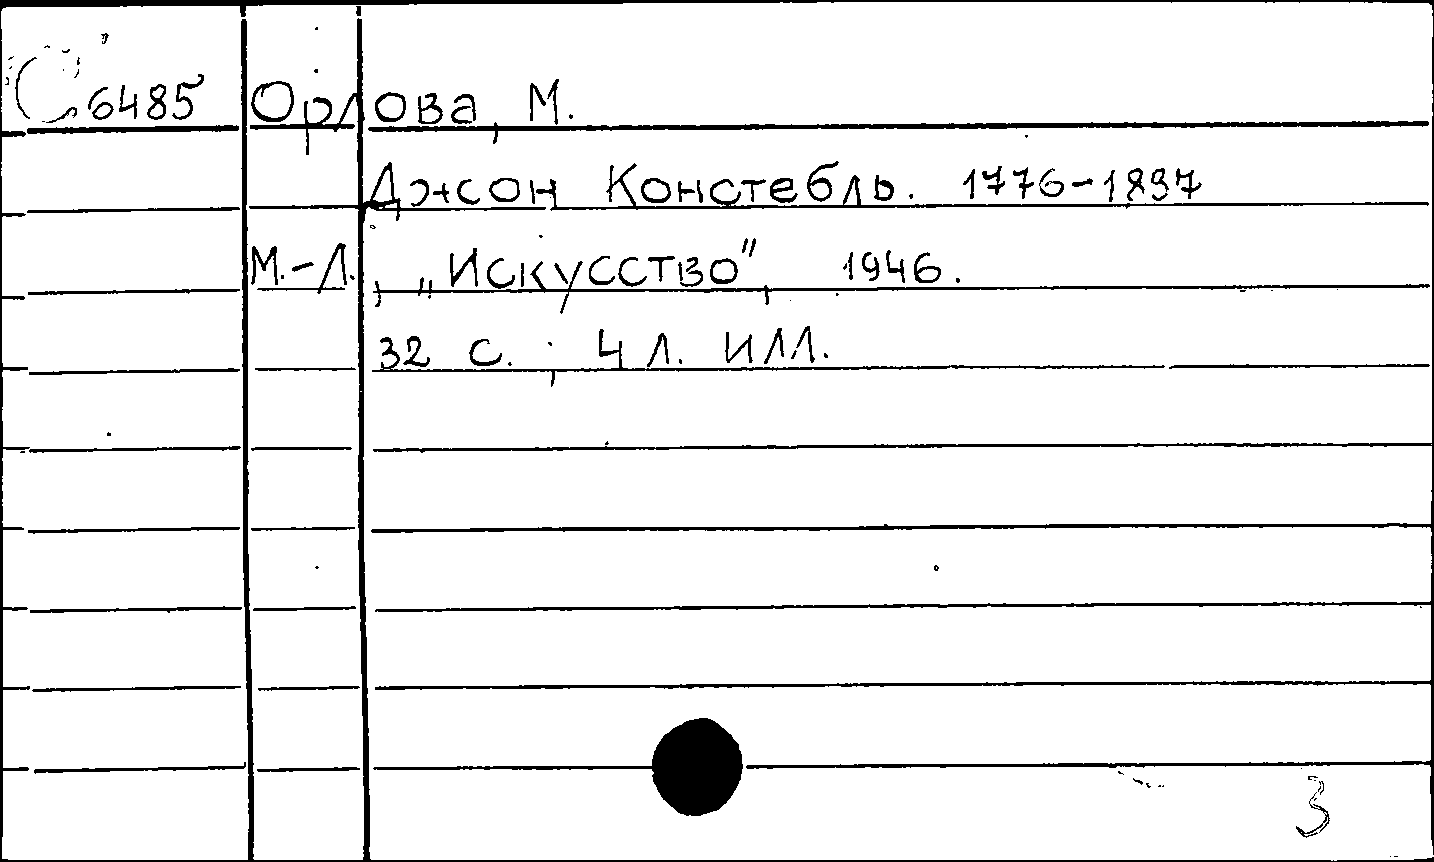 С 6485 Орлова, М.
Джон Констебль. 1776-1837
М.-Л., „Искусство", 1946.
32 с.; 4 л. илл.
3